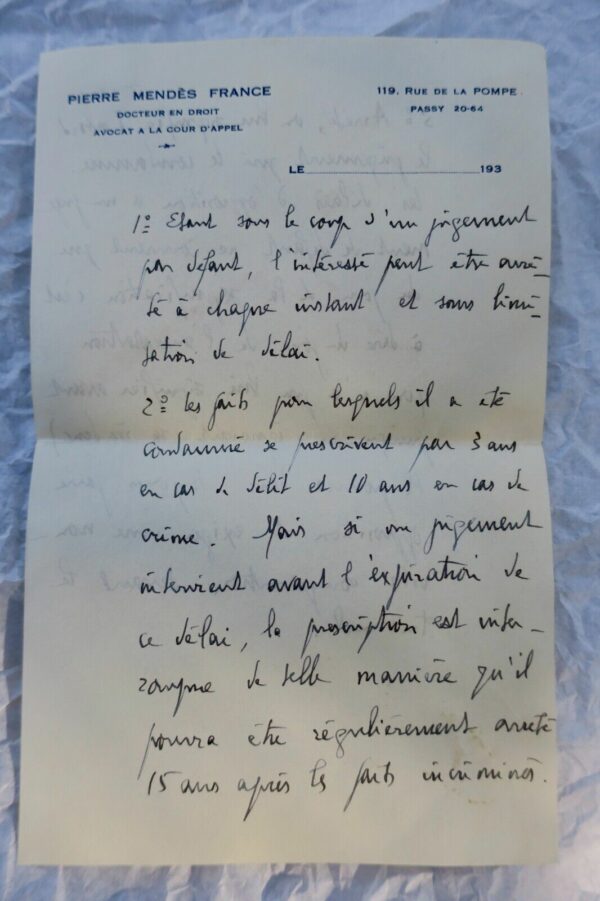 PIERRE MENDÈS FRANCE
DOCTEUR EN DROIT
AVOCAT A LA COUR D'APPEL
119, RUE DE LA POMPE
PASSY 20-64
LE 193
1º Etant sous le coup d'un jugement
par défaut, l'intéressé peut être arrê-
té à chaque instant et sans limi-
tation de délai.
2º les faits pour lesquels il a été
condamné se prescrivent par 3 ans
en cas de délit et 10 ans en cas de
crime. Mais si un jugement
intervient avant l'expiration de
ce délai, la prescription est inter-
rompue de telle manière qu'il
pourra être régulièrement arrêté
15 ans après les faits incriminés.